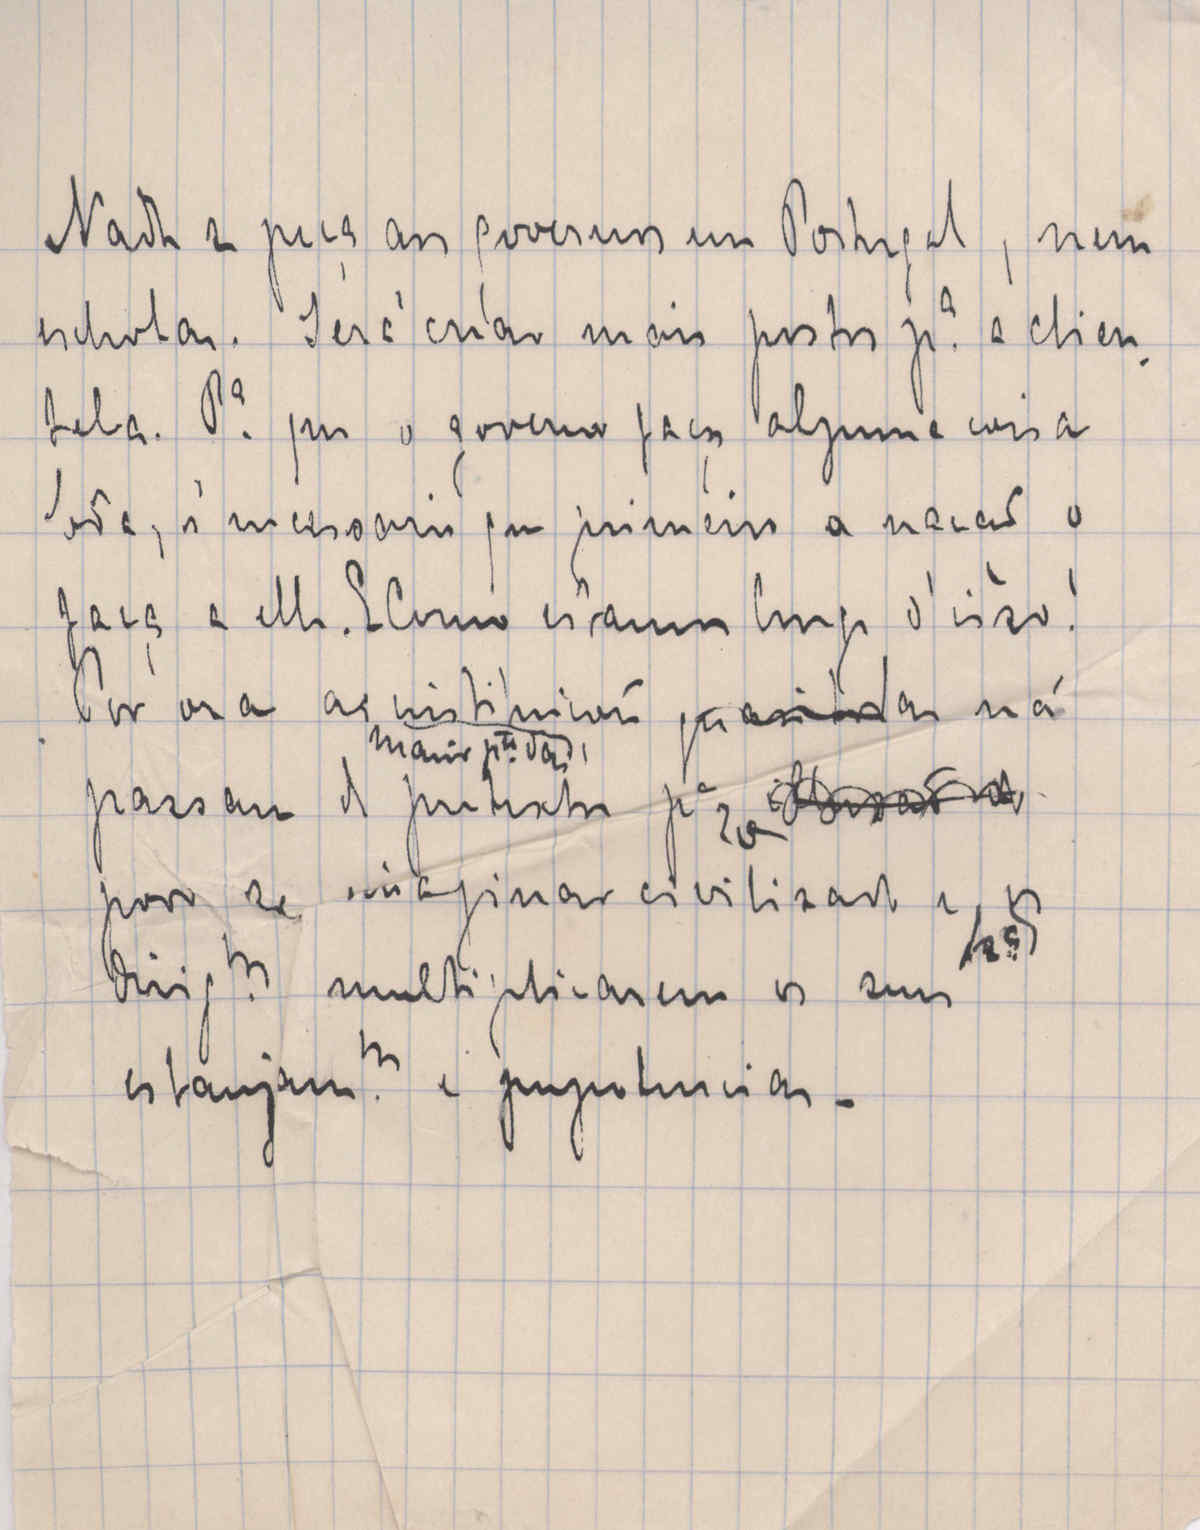 Nada se peça aos governos em Portugal, nem
escholas. Será criar mais postos p.ª a clien-
tela. P.ª que o governo faça alguma coisa
boa, é necessario que primeiro a nação o
faça a elle. E como estamos longe d'isso!
Por ora as instituições não
maior p.te das
passam de pretextos p.ª o
povo se imaginar civilisado e os
dirig.tes multiplicarem os seus
estanjam.tos e prepotencias _